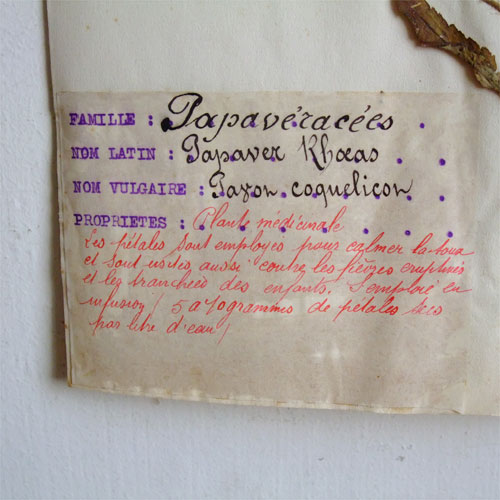 FAMILLE : Papavéracées
NOM LATIN : Papaver Rhœas
NOM VULGAIRE : Pavon coquelicon
PROPRIETES : Plante médicinale
Les pétales sont employés pour calmer la toux
et sont usités aussi contre les fièvres éruptives
et les tranchées des enfants. S'emploie en
infusion / 5 a 10 grammes de pétales secs
par litre d'eau /